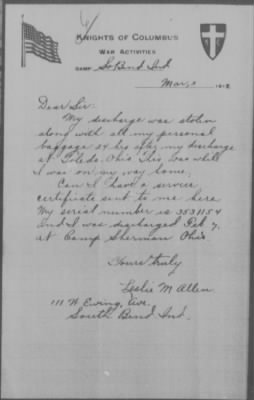 KNIGHTS OF COLUMBUS
WAR ACTIVITIES
CAMP So Bend Ind
Mar, 191
Dear Sir:
My discharge was stolen
along with all my personal
baggage 24 hrs after my discharge
at Toledo, Ohio This was while
I was on my way home,
Can I have a service
certificate sent to me here
My serial number is 3531154
and I was discharged Feb 7,
at Camp Sherman Ohio
Yours truly
Leslie M Allen
111 W Ewing, Ave.
South Bend Ind.